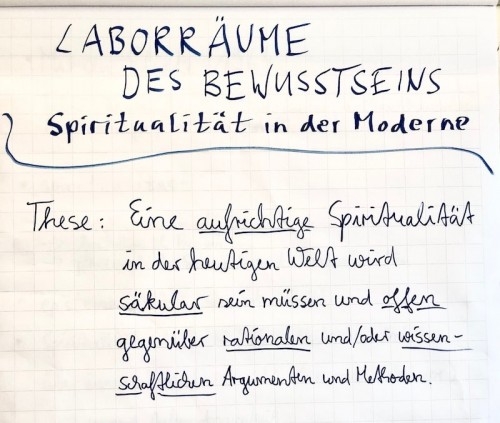 LABORRÄUME
DES BEWUSSTSEINS
Spiritualität in der Moderne
These: Eine aufrichtige Spiritualität
in der heutigen Welt wird
säkular sein müssen und offen
gegenüber rationalen und/oder wissen-
schaftlichen Argumenten und Methoden.